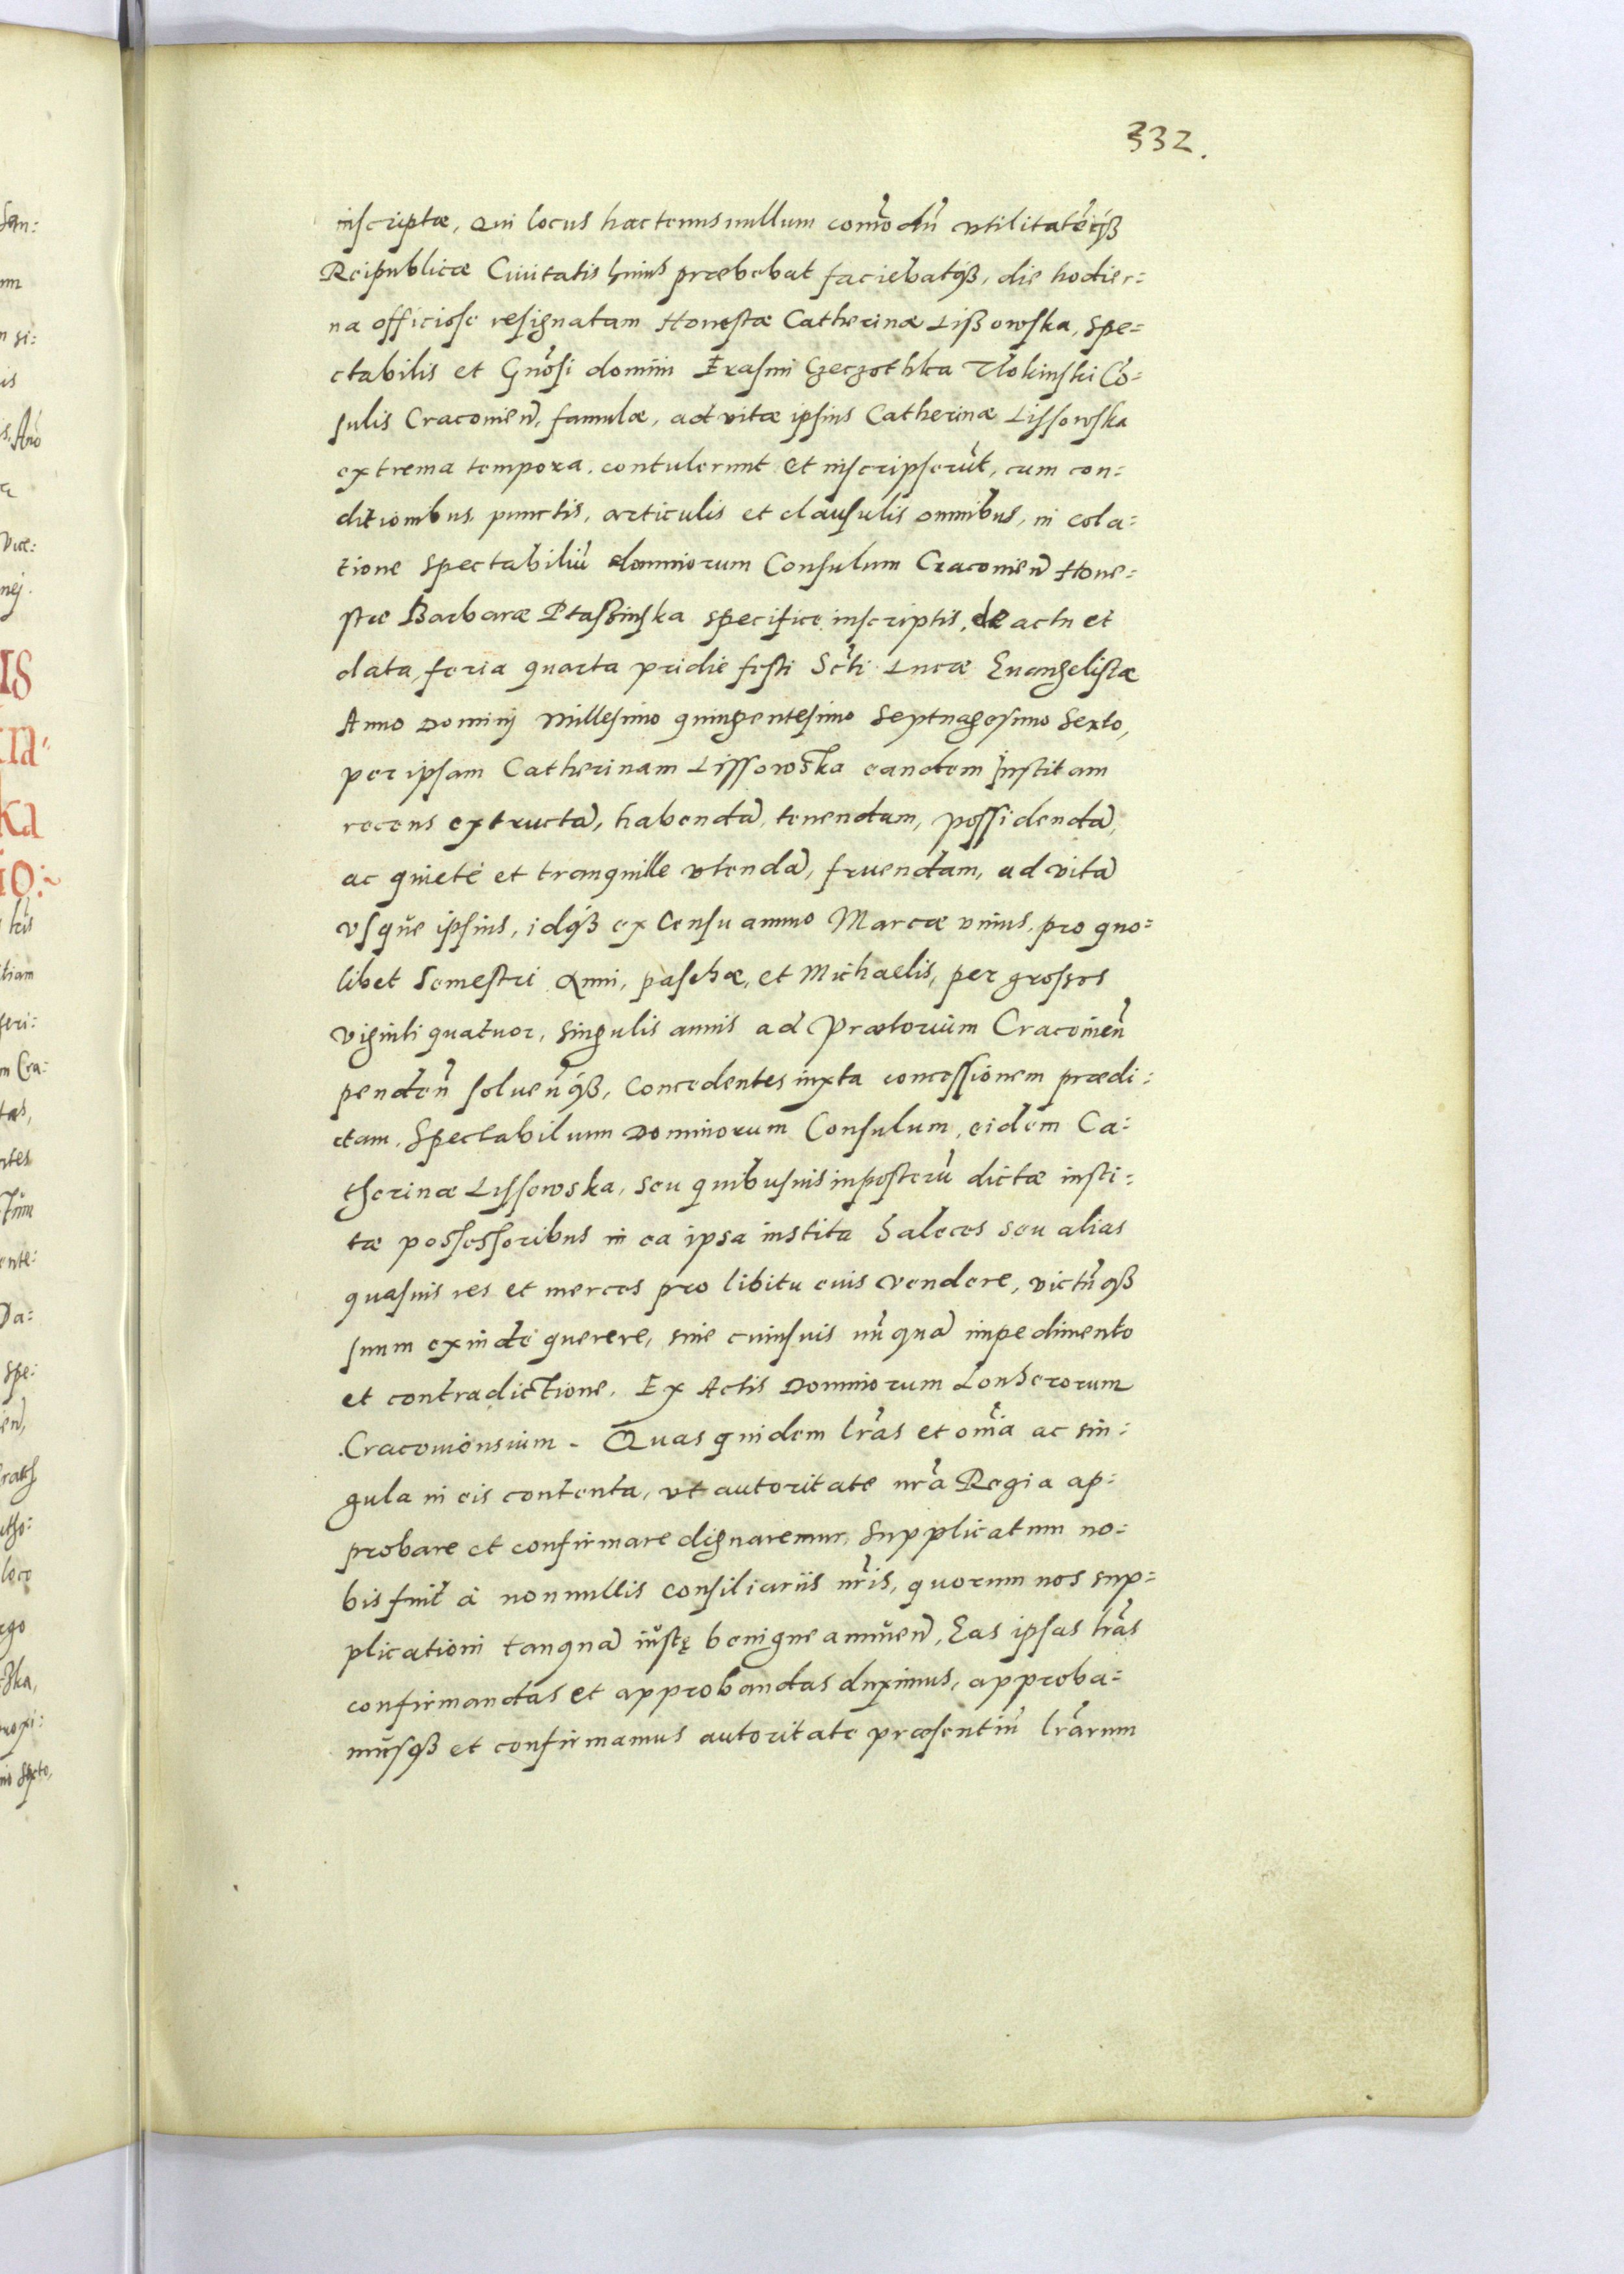 332.
inscriptæ, Qui locus hactenus nullum com̃odũ vtilitatẽqȝ
Reipublicæ Ciuitatis huius præbebat faciebatqȝ, die hodier=
na officiose resignatam Honestæ Catherinæ Lißowska, Spe=
ctabilis et Gñosi domini Erasmi Czeczothka Tłokinski Cõ=
sulis Cracouien̄, famulæ, ad vitæ ipsius Catherinæ Lissowska
extrema tempora, contulerunt et inscripserũt, cum con=
ditionibus, punctis, articulis et clausulis omnibus, in cola=
tione Spectabiliũ dominorum Consulum Cracouien̄ Hone=
stæ Barbaræ Ptaßinska specifice inscriptis, de actu et
data, feria quarta pridie festi Sc̃ti Lucæ Euangelistæ
Anno Dominj Millesimo quingentesimo Septuagesimo Sexto,
per ipsam Catherinam Lissowska eandem Institam
recens extructā, habendā, tenendam, possidendā,
ac quietè et tranquille vtendā, fruendam, ad vitā
vsque ipsius, idqȝ ex Censu annuo Marcæ vnius, pro quo=
libet Semestri Anni, paschæ, et Michaelis, per grossos
viginti quatuor, singulis annis ad Prætorium Cracouien̄
penden̄ soluen̄qȝ, Concedentes iuxta concessionem prædi=
ctam, Spectabilium Dominorum Consulum, eidem Ca=
therinæ Lissowska, seu quibusuis inposterũ dictæ insti=
tæ possessoribus in ea ipsa instita haleces seu alias
quasuis res et merces pro libitu eius vendere, victũqȝ
suum exinde querere, sine cuiusuis vñquā impedimento
et contradictione. Ex Actis Dominorum Lonherorum
Cracouiensium. Quas quidem lr̃as et om̃ia ac sin=
gula in eis contenta, vt autoritate nr̃a Regia ap=
probare et confirmare dignaremur, Supplicatum no=
bis fuit à nonnullis consiliariis nr̃is, quorum nos sup=
plicationi tanquā iustę benigne annuen̄, Eas ipsas lr̃as
confirmandas et approbandas duximus, approba=
musqȝ et confirmamus autoritate præsentiũ lr̃arum